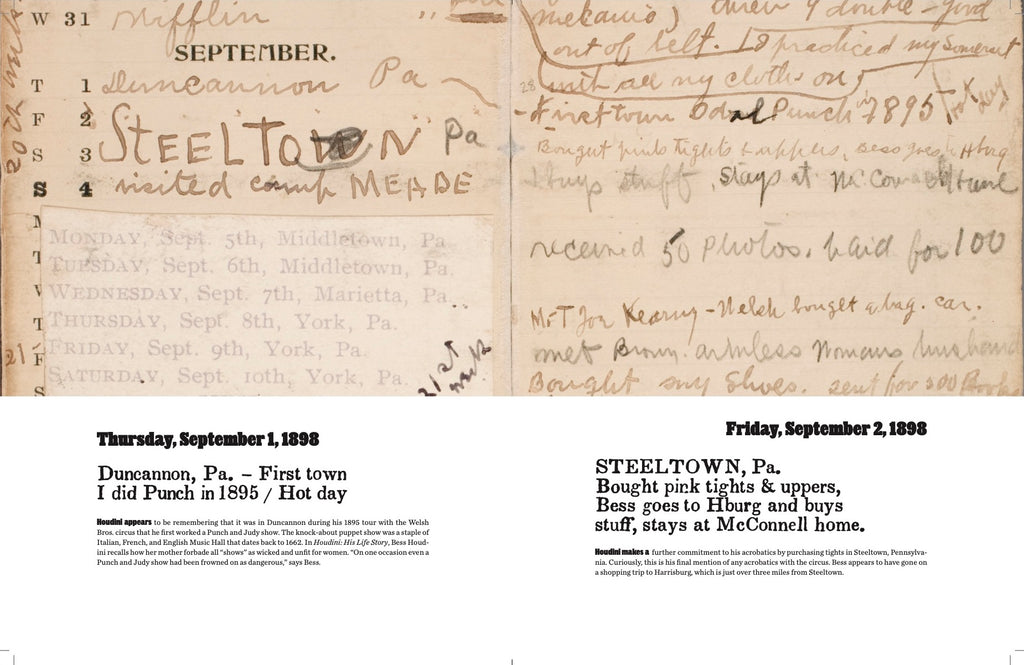 W 31 Mifflin "
SEPTEMBER.
T 1 Duncannon Pa
F 2 STEELTOWN Pa
S 3
S 4 visited camp MEADE
MONDAY, Sept. 5th, Middletown, Pa
TUESDAY, Sept. 6th, Middletown, Pa.
WEDNESDAY, Sept. 7th, Marietta, Pa.
THURSDAY, Sept. 8th, York, Pa.
FRIDAY, Sept. 9th, York, Pa.
SATURDAY, Sept. 10th, York, Pa.
20th week
21
21st week
out of belt. I practiced my somersault
28 with all my cloths on
First town I did Punch in 1895 / Hot day
Bought pink tights & uppers, Bess goes Hburg
& buys stuff, stays at Mc Connell Home
received 50 Photos. paid for 100
Mr T Joe Kearny - Welsh bouget a bag. car.
met Brown. armless Womans husband
Bought my Shoes. sent for 500 Books
Thursday, September 1, 1898
Duncannon, Pa. – First town
I did Punch in 1895 / Hot day
Houdini appears to be remembering that it was in Duncannon during his 1895 tour with the Welsh
Bros. circus that he first worked a Punch and Judy show. The knock-about puppet show was a staple of
Italian, French, and English Music Hall that dates back to 1662. In Houdini: His Life Story, Bess Houd-
ini recalls how her mother forbade all "shows" as wicked and unfit for women. "On one occasion even a
Punch and Judy show had been frowned on as dangerous," says Bess.
Friday, September 2, 1898
STEELTOWN, Pa.
Bought pink tights & uppers,
Bess goes to Hburg and buys
stuff, stays at McConnell home.
Houdini makes a further commitment to his acrobatics by purchasing tights in Steeltown, Pennsylva-
nia. Curiously, this is his final mention of any acrobatics with the circus. Bess appears to have gone on
a shopping trip to Harrisburg, which is just over three miles from Steeltown.